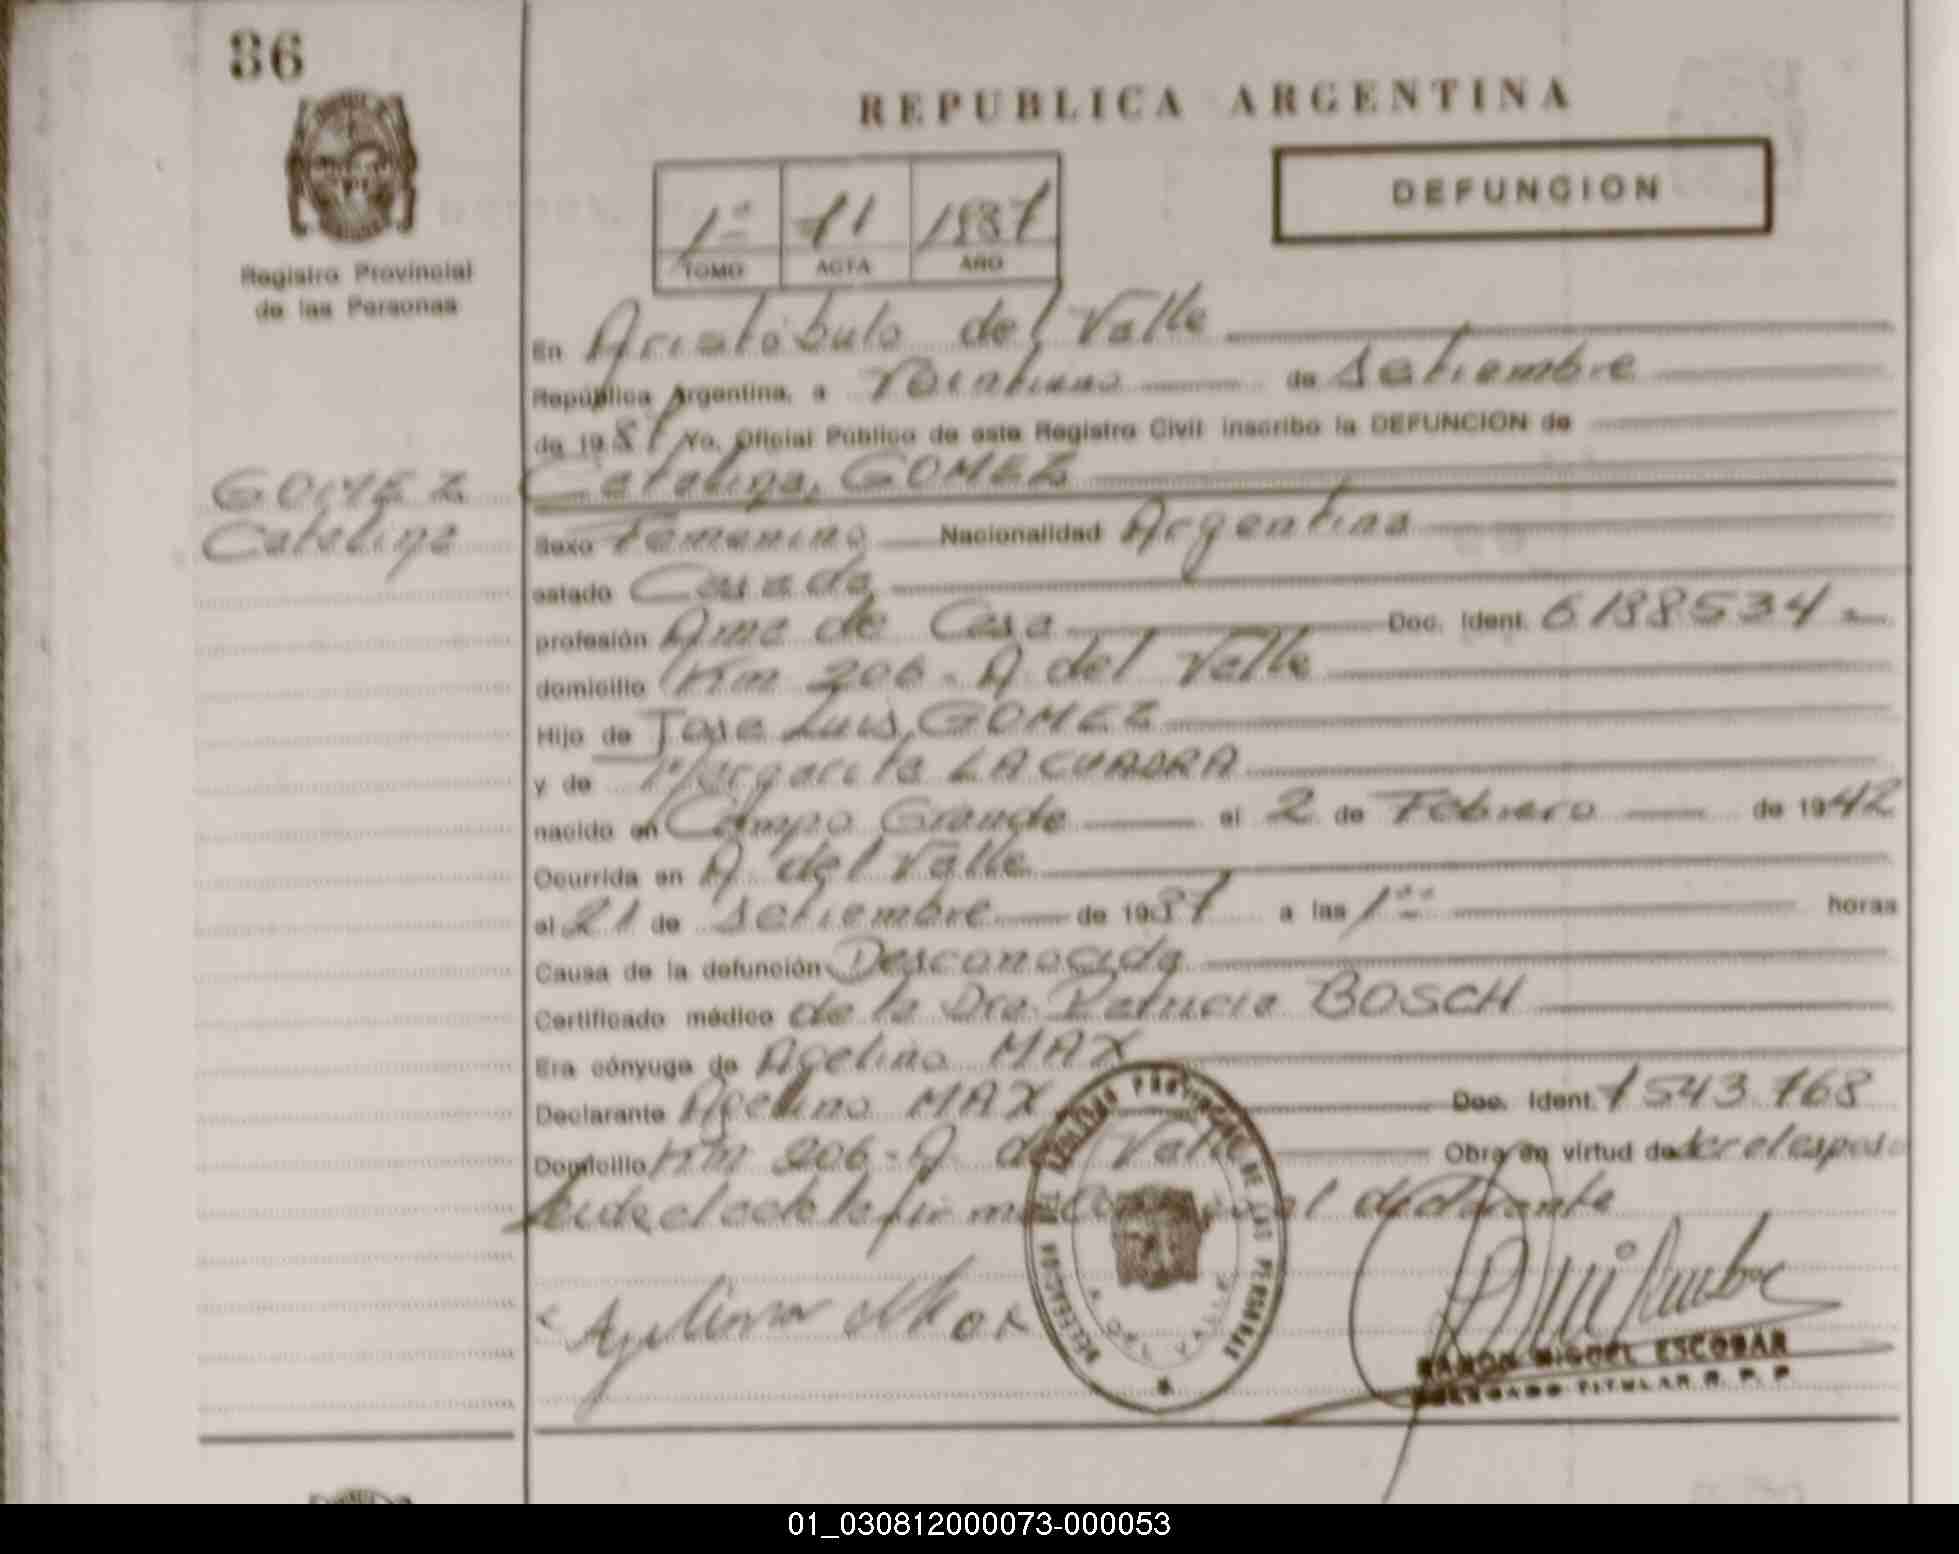 86
REPUBLICA ARGENTINA
DEFUNCION
1º 71 1987
TOMO ACTA AÑO
Registro Provincial
de las Personas
En Aristóbulo del Valle
República Argentina, a Veintiuno de Setiembre
de 1987 Yo, Oficial Público de este Registro Civil inscribo la DEFUNCION de
GOMEZ
Catalina
Catalina, GOMEZ
Sexo Femenino Nacionalidad Argentina
estado Casada
profesión Ama de Casa Doc. Ident. 6188534
domicilio Km 206 - A del Valle
Hijo de Jose Luis, GOMEZ
y de Margarita LACUADRA
nacido en Campo Grande el 2 de Febrero de 1942
Ocurrida en A. del Valle
el 21 de Setiembre de 1987 a las 1 horas
Causa de la defunción Desconocida
Certificado médico de la Dra. Patricia BOSCH
Era cónyuge de Agelino MAX
Declarante Agelino MAX Doc. Ident. 7543.768
Domicilio Km 206 - A del Valle Obra en virtud de ser el esposo
Leida el acta la firma el declarante
DELEGACION REGISTRO PROVINCIAL DE LAS PERSONAS
A. DEL VALLE
RAMON MIGUEL ESCOBAR
DELEGADO TITULAR R. P. P.
01_030812000073-000053